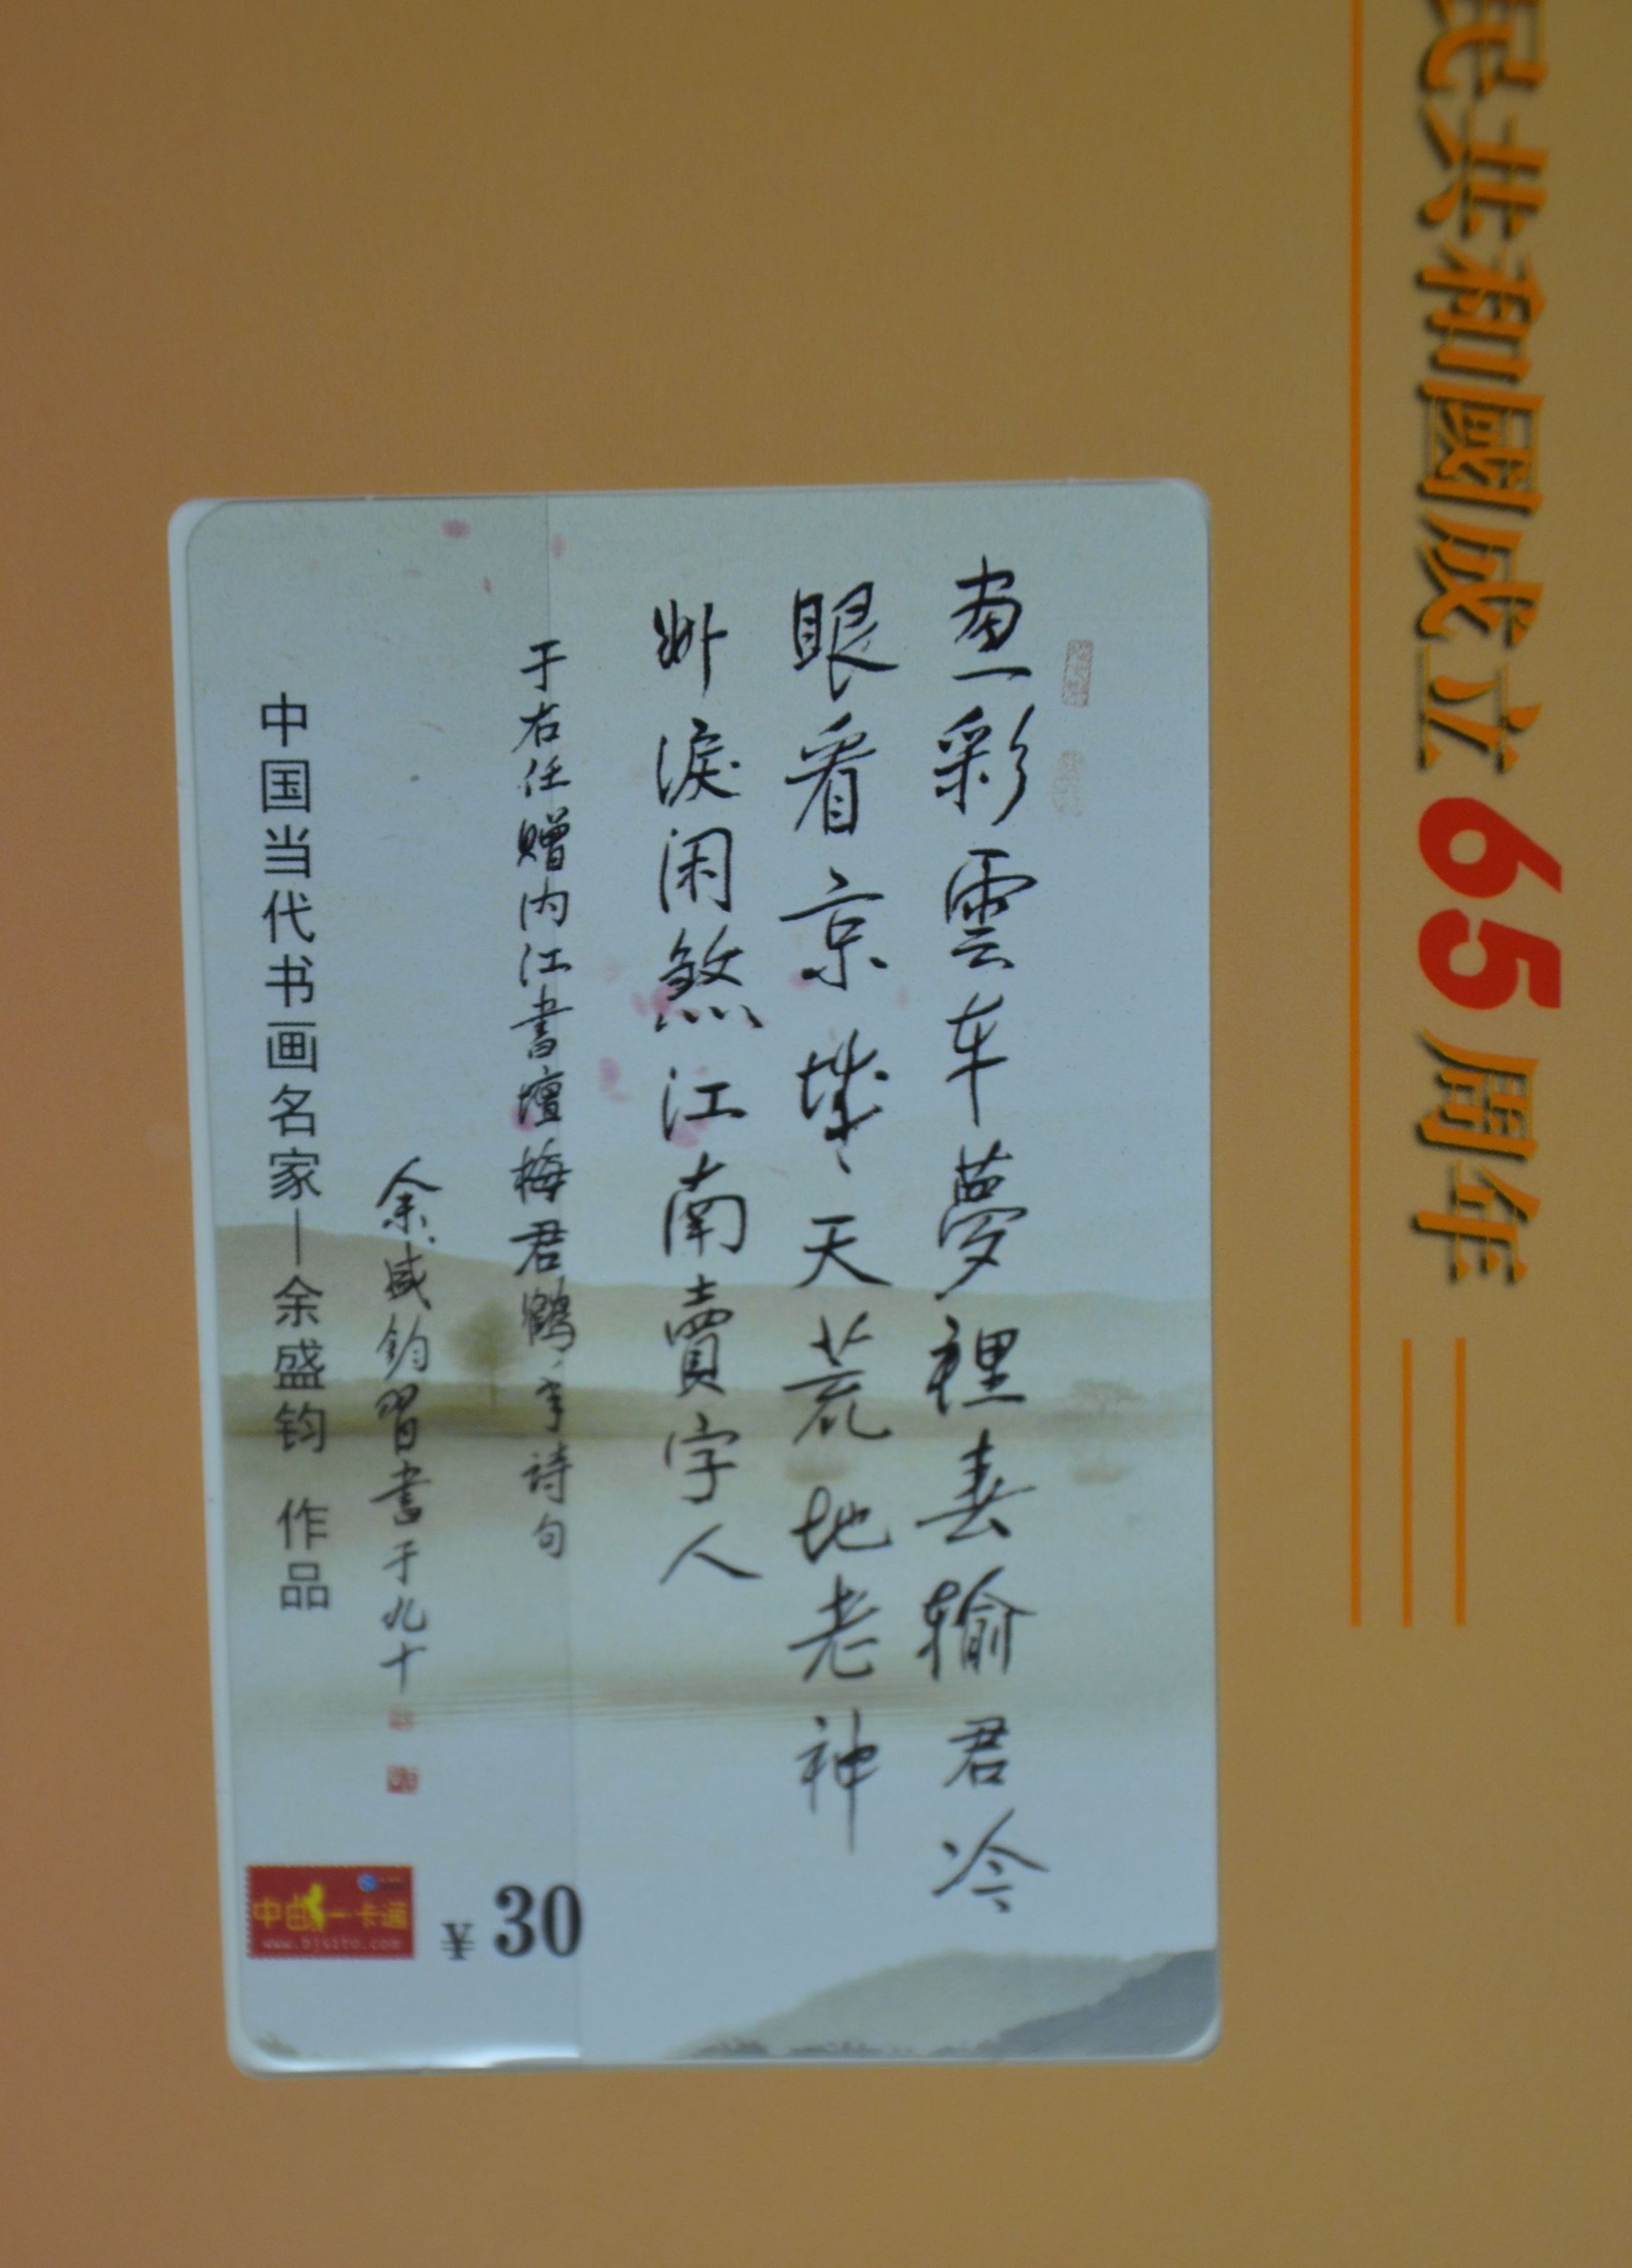 民共和國成立65周年
畫彩雲车夢裡春输君冷
眼看京天荒地老神
州淚闲煞江南賣字人
于右任贈内江書壇梅君鶴年詩句
余盛鈞習書于九十
中国当代书画名家—余盛钧 作品
中曲一卡通
www.bjsito.com
¥30